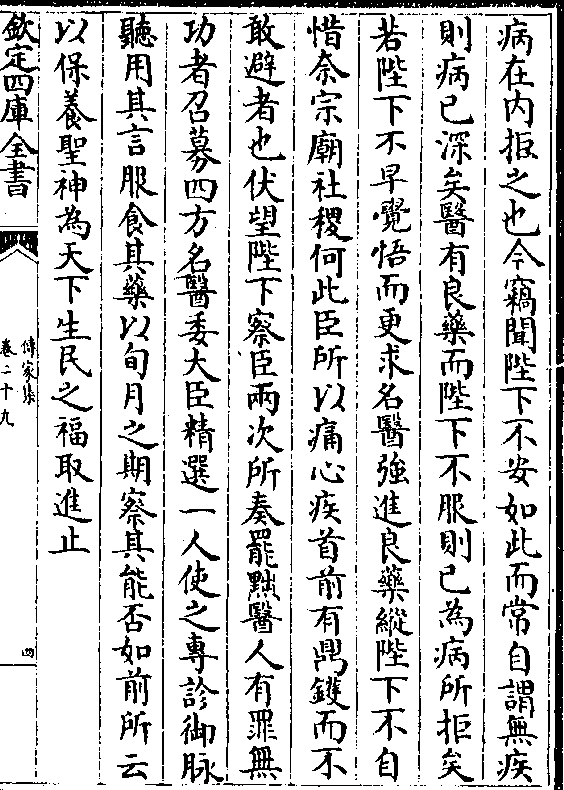 病在内拒之也今竊聞陛下不安如此而常自謂無疾
則病已深矣醫有良藥而陛下不服則已為病所拒矣
若陛下不早覺悟而更求名醫強進良藥縱陛下不自
惜奈宗廟社稷何此臣所以痛心疾首前有鼎鑊而不
敢避者也伏望陛下察臣兩次所奏罷黜醫人有罪無
功者召募四方名醫委大臣精選一人使之專診御脉
聽用其言服食其藥以旬月之期察其能否如前所云
以保養聖神為天下生民之福取進止
欽定四庫全書
傳家集
卷二十九
四